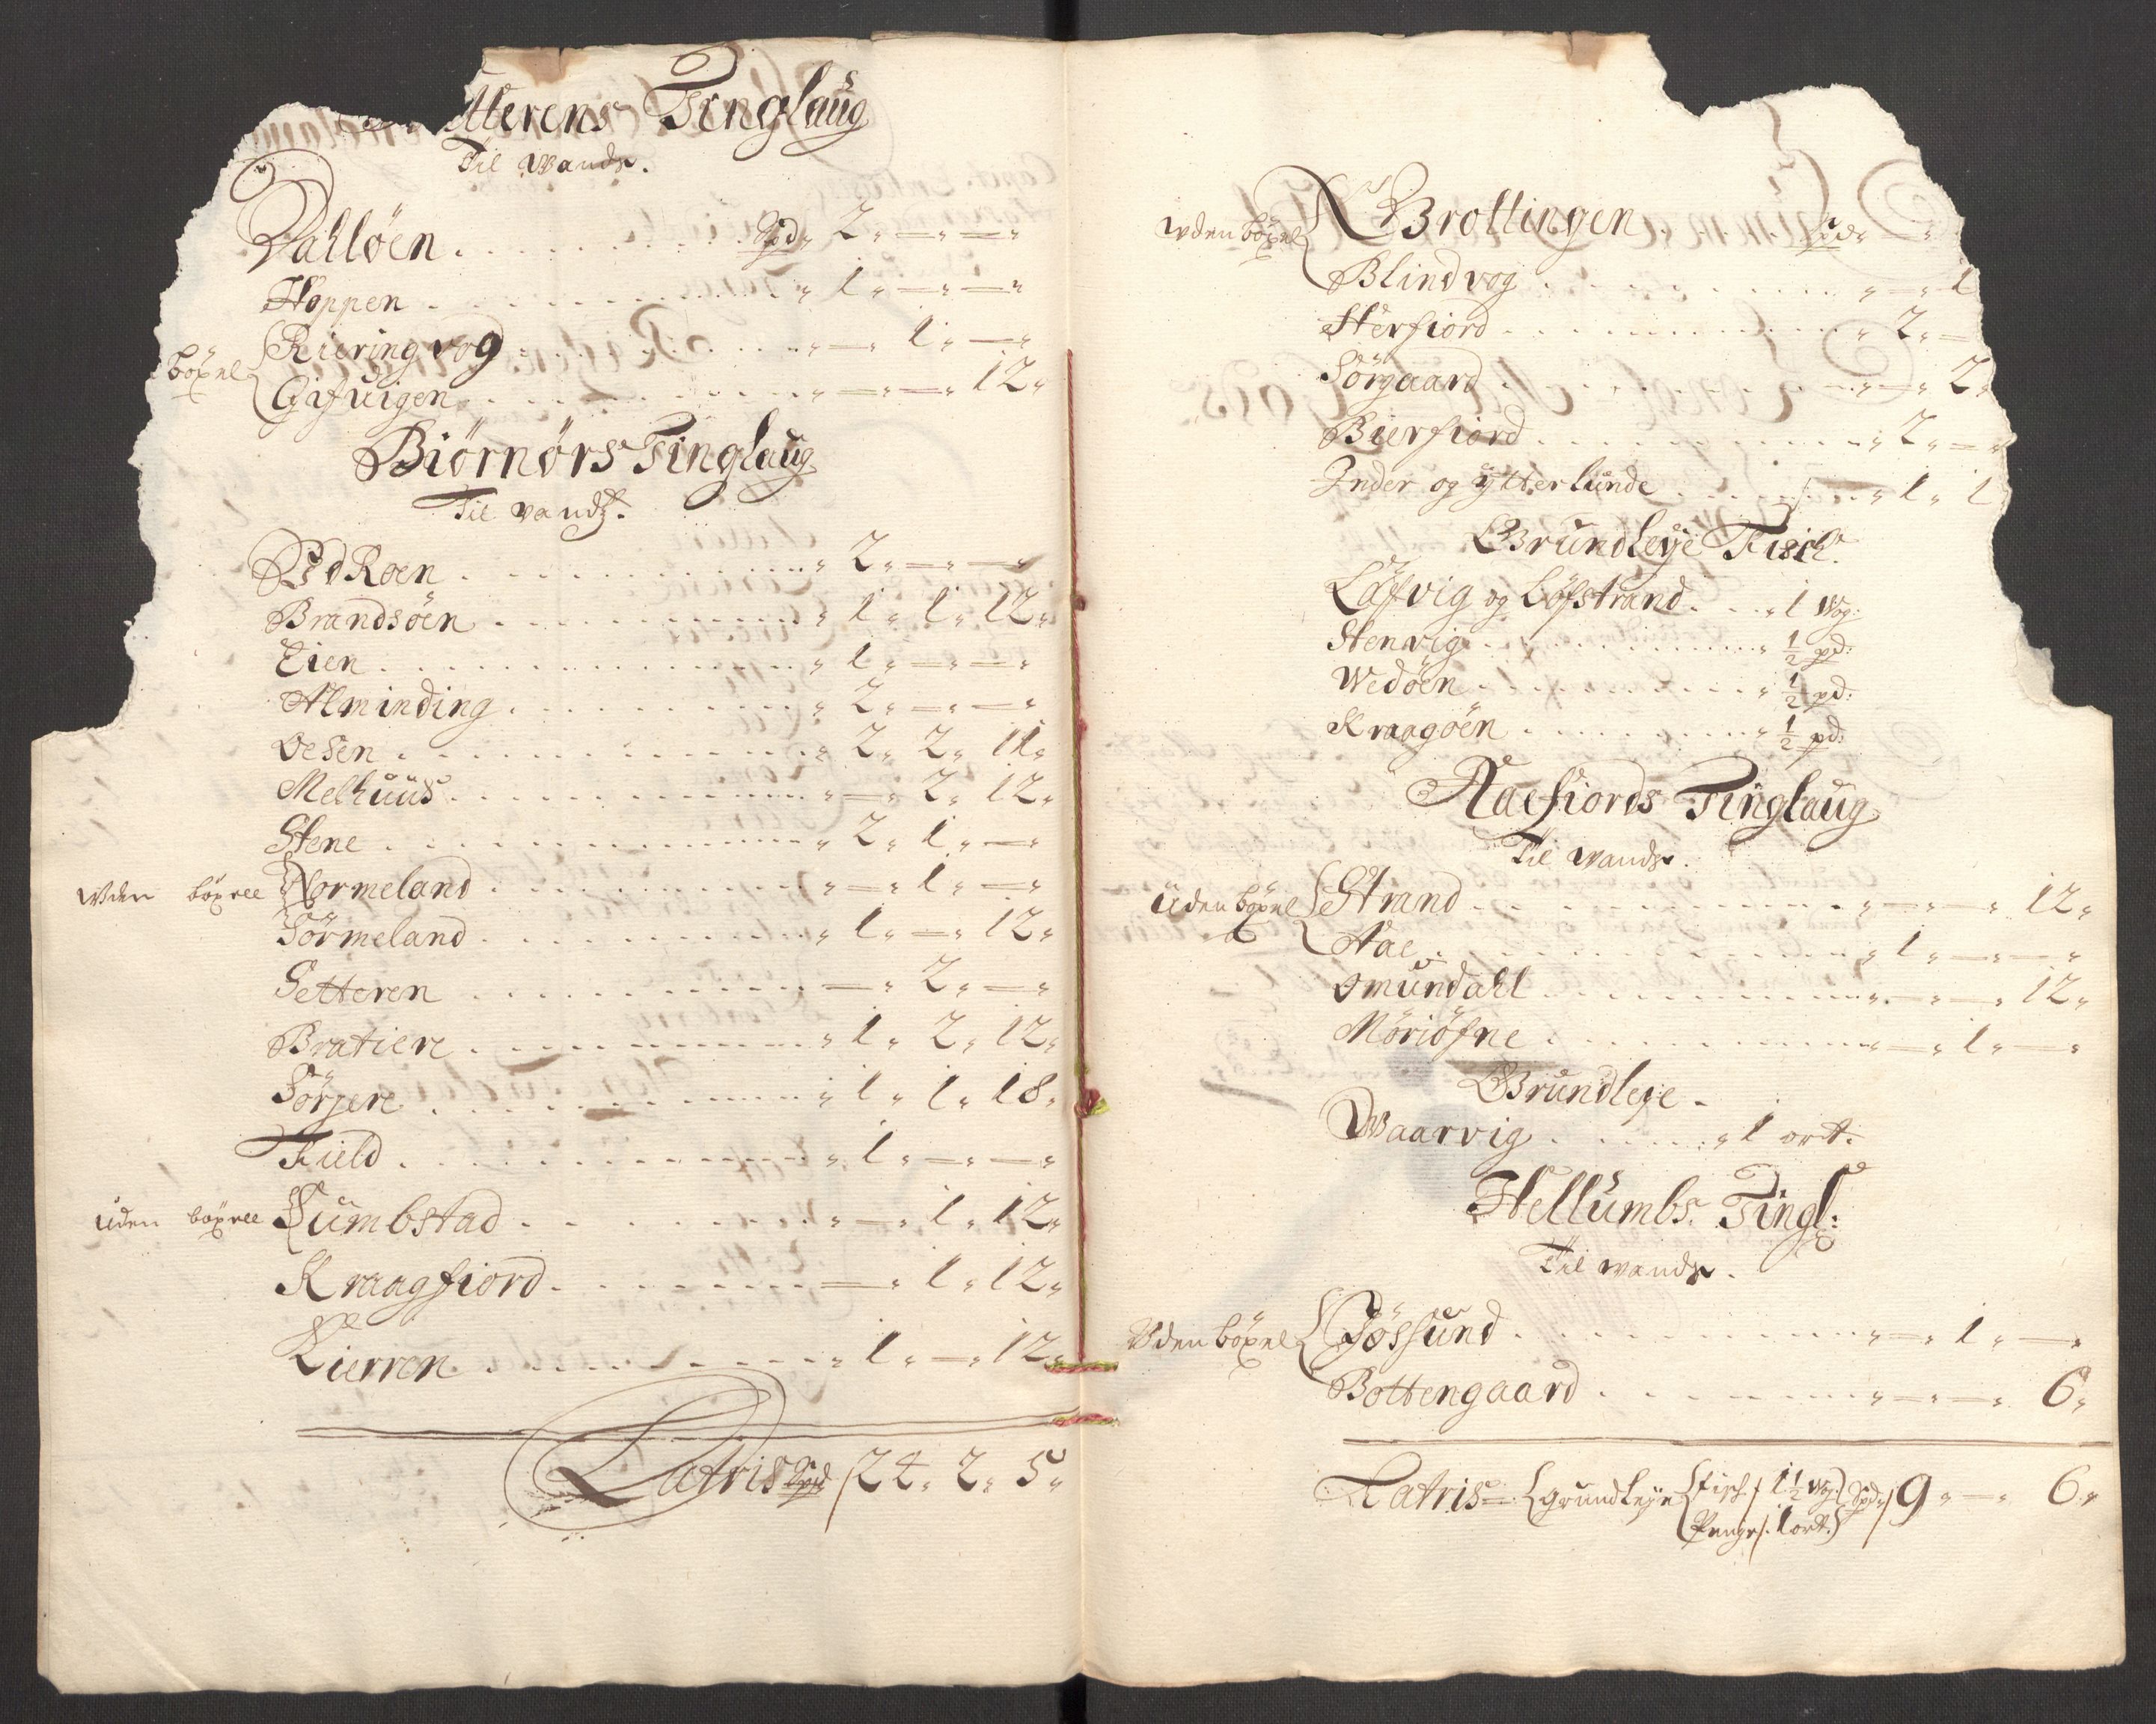 tterens Tinglaug
Til Wands.
Dahlöen . . . Spd „ 2 „ — „ — „
Hoppen . . . „ 1 „ — „ — „
böxel { Kieringvog . . . „ — „ 1 „ — „
Gifvigen . . . „ — „ — „ 12 „
Biörnörs Tinglaug
Til vands.
Roen . . . „ 2 „ — „ — „
Brandsöen . . . „ 1 „ 1 „ 12 „
Eien . . . „ 1 „ — „ — „
Alminding . . . „ 2 „ — „ — „
Oesen . . . „ 2 „ 2 „ 11 „
Melhuus . . . „ — „ 2 „ 12 „
Stene . . . „ 2 „ 1 „ — „
Uden böxell { Normeland . . . „ — „ 1 „ — „
Sörmeland . . . „ 1 „ — „ 12 „
Setteren . . . — „ 2 „ — „
Bratiere . . . „ 1 „ 2 „ 12 „
Sörjere . . . „ 1 „ 1 „ 18 „
Field . . . „ 1 „ — „ — „
uden böxell { Sumbstad . . . „ — „ 1 „ 12 „
Kraagfiord . . . — „ 1 „ 12 „
Kierren . . . „ 1 „ — „ 12 „
Latris Spd / 24 „ 2 „ 5 „
uden böxel { Brottingen . . . Spd „ — „
Blindvog . . . „ — „ 1
Sterfiord . . . „ 2 „ —
Sörgaard . . . „ — „ 2 „
Bierfiord . . . „ 2 „ — „
Inder og ytterlunde . . . „ 1 „ 1
Grundleye Fisch.
Läfvig og Löfstrand . . . „ 1 Wog:
Stenvig . . . „ ½ pd:
Wedöen . . . „ ½ pd:
Kraagöen . . . „ ½ pd:
Aaefiords Tinglaug
Til Wands.
uden böxel { Strand . . . „ — „ — „ 12 „
Aae . . . „ 1 „ — „ — „
Omundahl . . . „ — „ — „ 12 „
Möriöfne . . . „ — „ 1 „ — „
Grundleje.
Waarvig . . . „ 1 ort.
Hellumbs Tingl:
Til wands.
Uden böxel { Jössund . . . „ — „ 1 „ — „
Bottengaard . . . „ — „ — „ 6 „
Latris { grundleye { Fisch / 1½ Wog: } Spd / 9 „ — „ 6 „
Penge / 1 ort. }